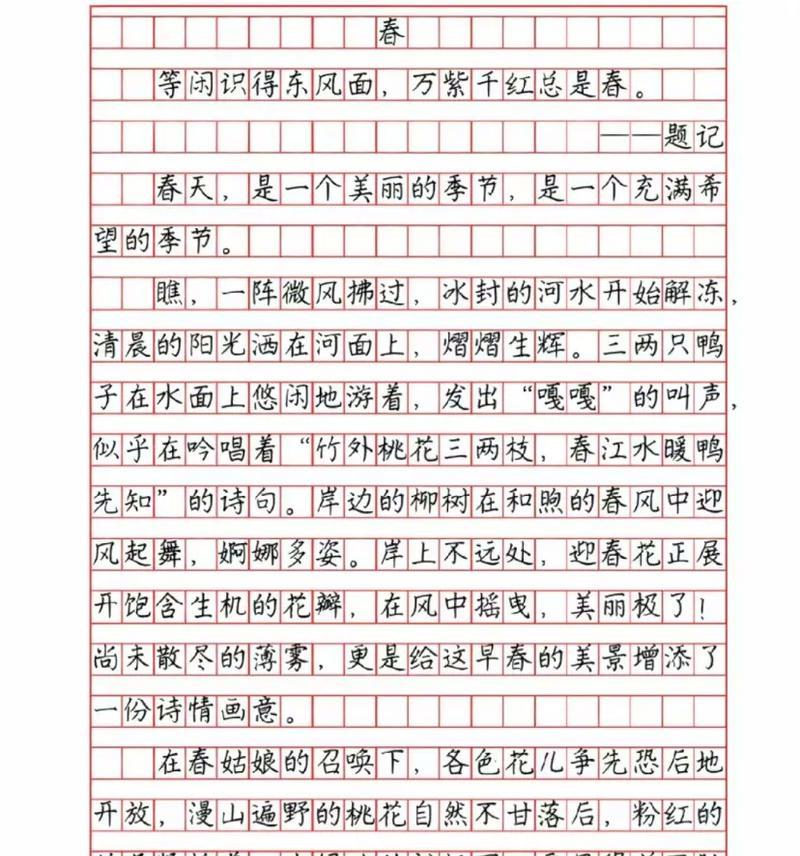 春
等闲识得东风面，万紫千红总是春。
——题记
春天，是一个美丽的季节，是一个充满希
望的季节。
瞧，一阵微风拂过，冰封的河水开始解冻，
清晨的阳光洒在河面上，熠熠生辉。三两只鸭
子在水面上悠闲地游着，发出“嘎嘎”的叫声，
似乎在吟唱着“竹外桃花三两枝，春江水暖鸭
先知”的诗句。岸边的柳树在和煦的春风中迎
风起舞，婀娜多姿。岸上不远处，迎春花正展
开饱含生机的花瓣，在风中摇曳，美丽极了！
尚未散尽的薄雾，更是给这早春的美景增添了
一份诗情画意。
在春姑娘的召唤下，各色花儿争先恐后地
开放，漫山遍野的桃花自然不甘落后，粉红的